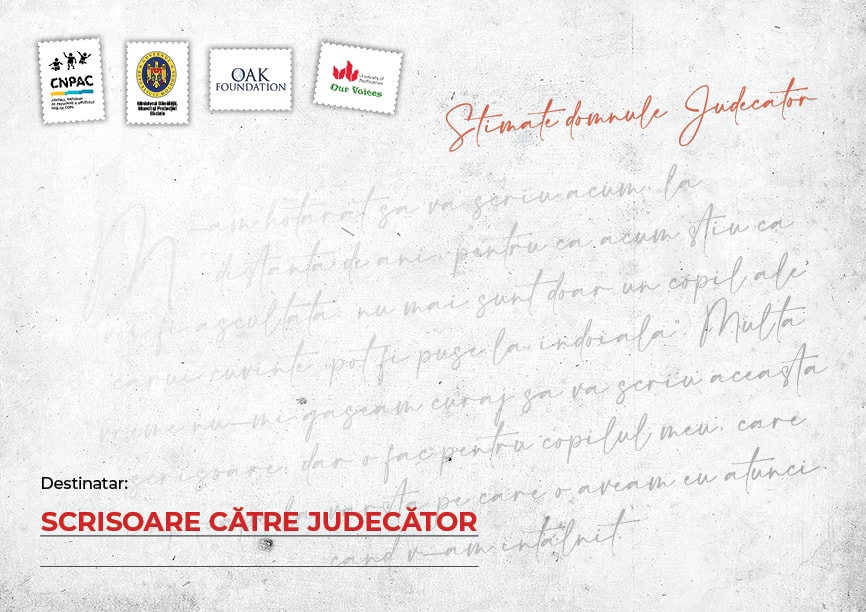 CNPAC
OAK
FOUNDATION
University of
Bedfordshire
Our Voices
Stimate domnule Judecator
M-am hotarat sa va scriu acum, la
distanta de ani, pentru ca acum stiu ca
voi fi ascultata, nu mai sunt doar un copil ale
carui cuvinte pot fi puse la indoiala". Multa
vreme nu-mi gaseam curaj sa va scriu aceasta
scrisoare, dar o fac pentru copilul meu, care
varsta pe care o aveam eu atunci
cand v-am intalnit
Destinatar:
SCRISOARE CĂTRE JUDECĂTOR